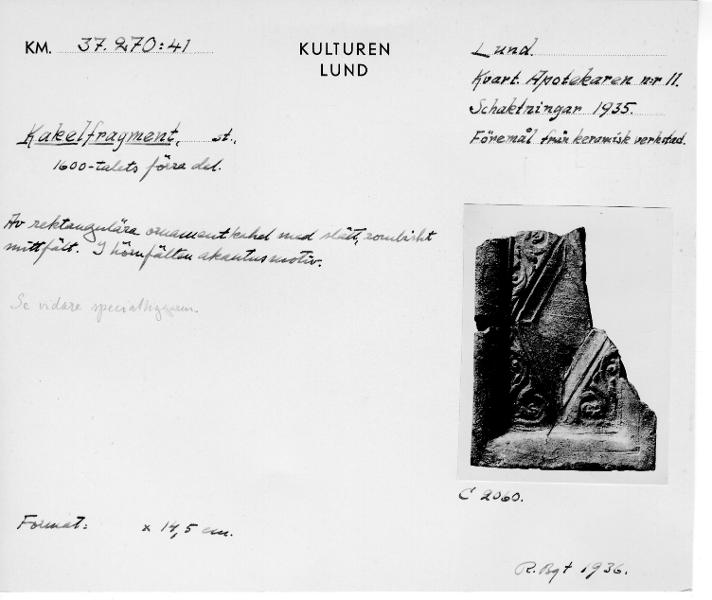 KM. 37.270:41
KULTUREN
LUND
Lund.
Kvart. Apotekaren n:r 11.
Schaktningar 1935.
Föremål från keramisk verkstad.
Kakelfragment, st.,
1600-talets förra del.
Av rektangulära ornamentkakel med slätt, rombiskt
mittfält. I hörnfälten akantusmotiv.
Se vidare
C 2060.
Format: x 14,5 cm.
R. Bgt 1936.